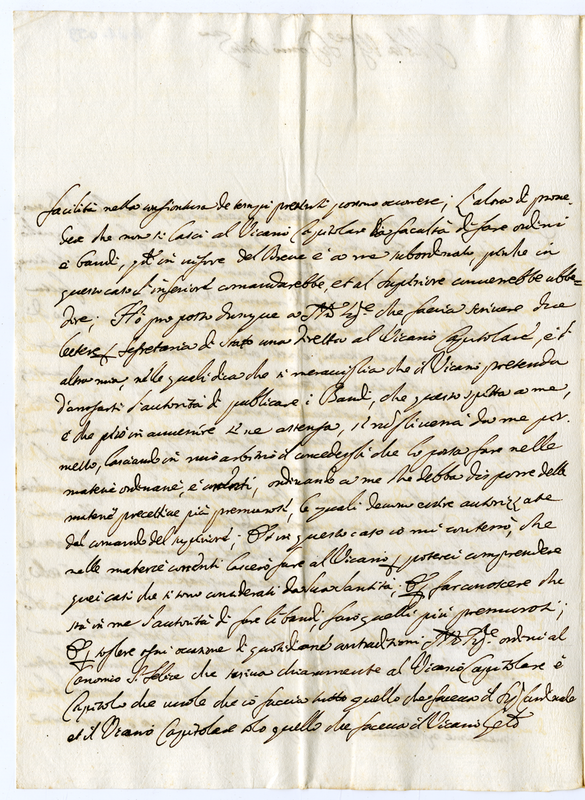 facilità nella congiontura de tempi presenti possono occorrere; L'altra è prove
der che non si lasci al Vicario Capitolare la facultà di fare ordini
e bandi, perche in vigore del Breve è a me subordinato poiche in
questo caso l'inferiore comandarebbe, et al superiore converrebbe ubbe-
dire; Hò proposto dunque a che faccia scrivere due
lettere Segretaria di Stato una diretta al Vicario Capitolare, e l'
altra mia, nelle quali dica che si meraviglia che il Vicario pretenda
d'arrogarsi l'autorità di publicare i Bandi, che questo spetta a me,
e che però in avvenire se ne astenga, da me per
messo, lasciando in mio arbitrio il concedergli che lo possa fare nelle
materie ordinarie, e correnti, ordinando a me che debba disporre delle
materie precettive più premurose, le quali devono essere autorizzate
dal comando del superiore; Et in questo caso io mi conterrò, che
nelle materie correnti lascerò fare al Vicario, potersi comprendere
quei casi che si sono considerati da Sua Santità; far conoscere che
stà in me l'autorità di fare li bandi, farò quelli più premurosi;
togliere ogni occasione di quotidiane contradizioni ordini al
Canonico S. Felice che scriva chiaramente al Vicario Capitolare e
Capitolo che vuole che io faccia tutto quello che faceva il Cardinale
et il Vicario Capitolare solo quello che faceva il Vicario